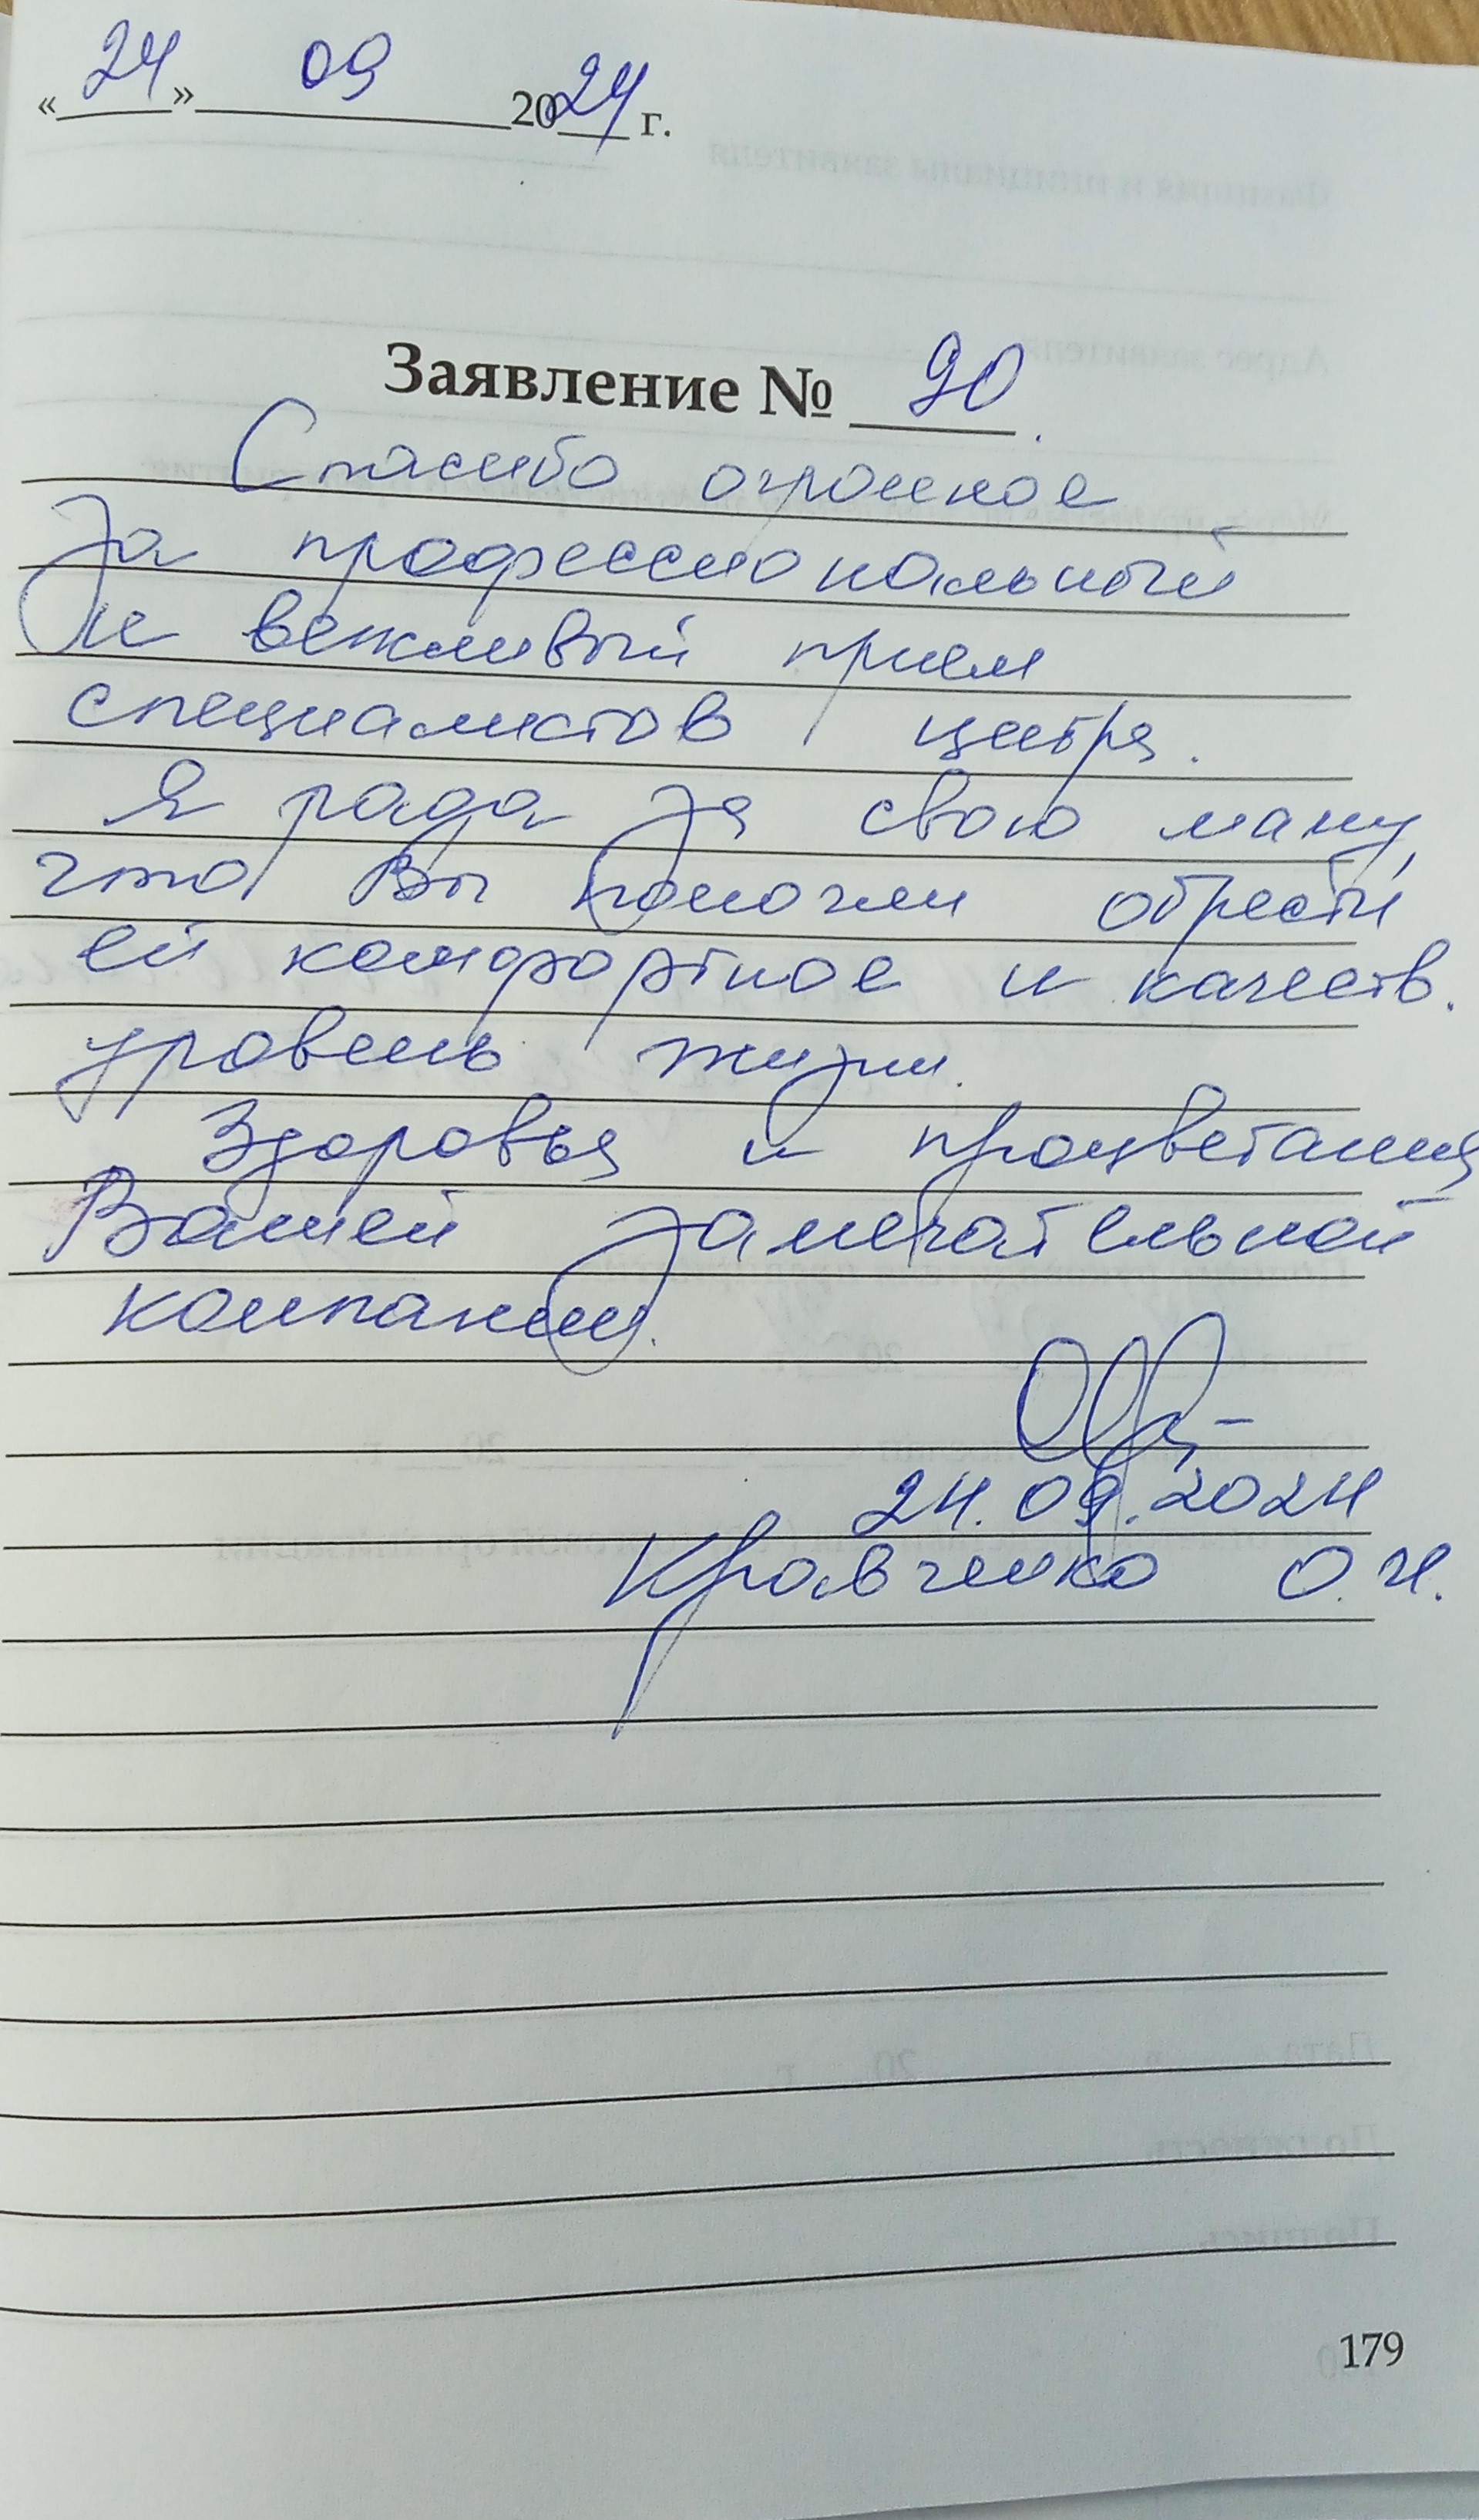 «24» 09 2024 г.
Заявление № 90
Спасибо огромное
за профессиональный
и вежливый прием
специалистов центра.
Я рада за свою маму,
что Вы помогли обрести
ей комфортное и качеств.
уровень жизни.
Здоровья и процветания
Вашей замечательной
компании.
24.09.2024
Кравченко О.Н.
179